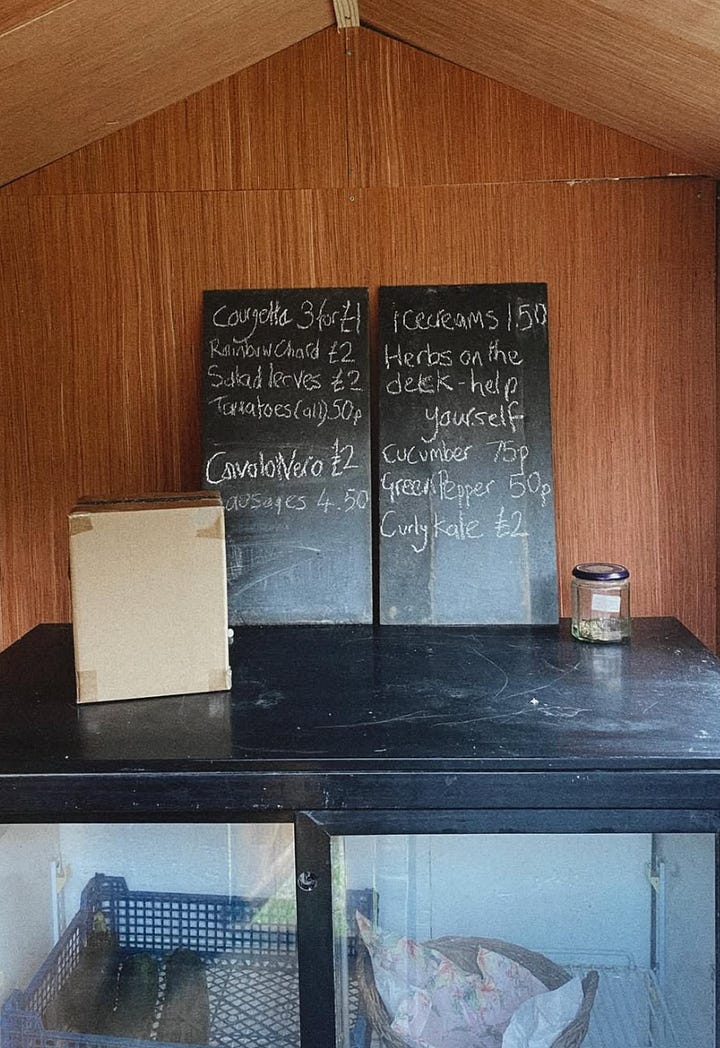 Courgetta 3 for £1
Rainbow Chard £2
Salad lerves £2
Tomatoes (all) 50p
CavoloNero £2
ausages 4.50
icecreams 1.50
Herbs on the
deck - help
yourself
cucumber 75p
Green Pepper 50p
Curly kale £2